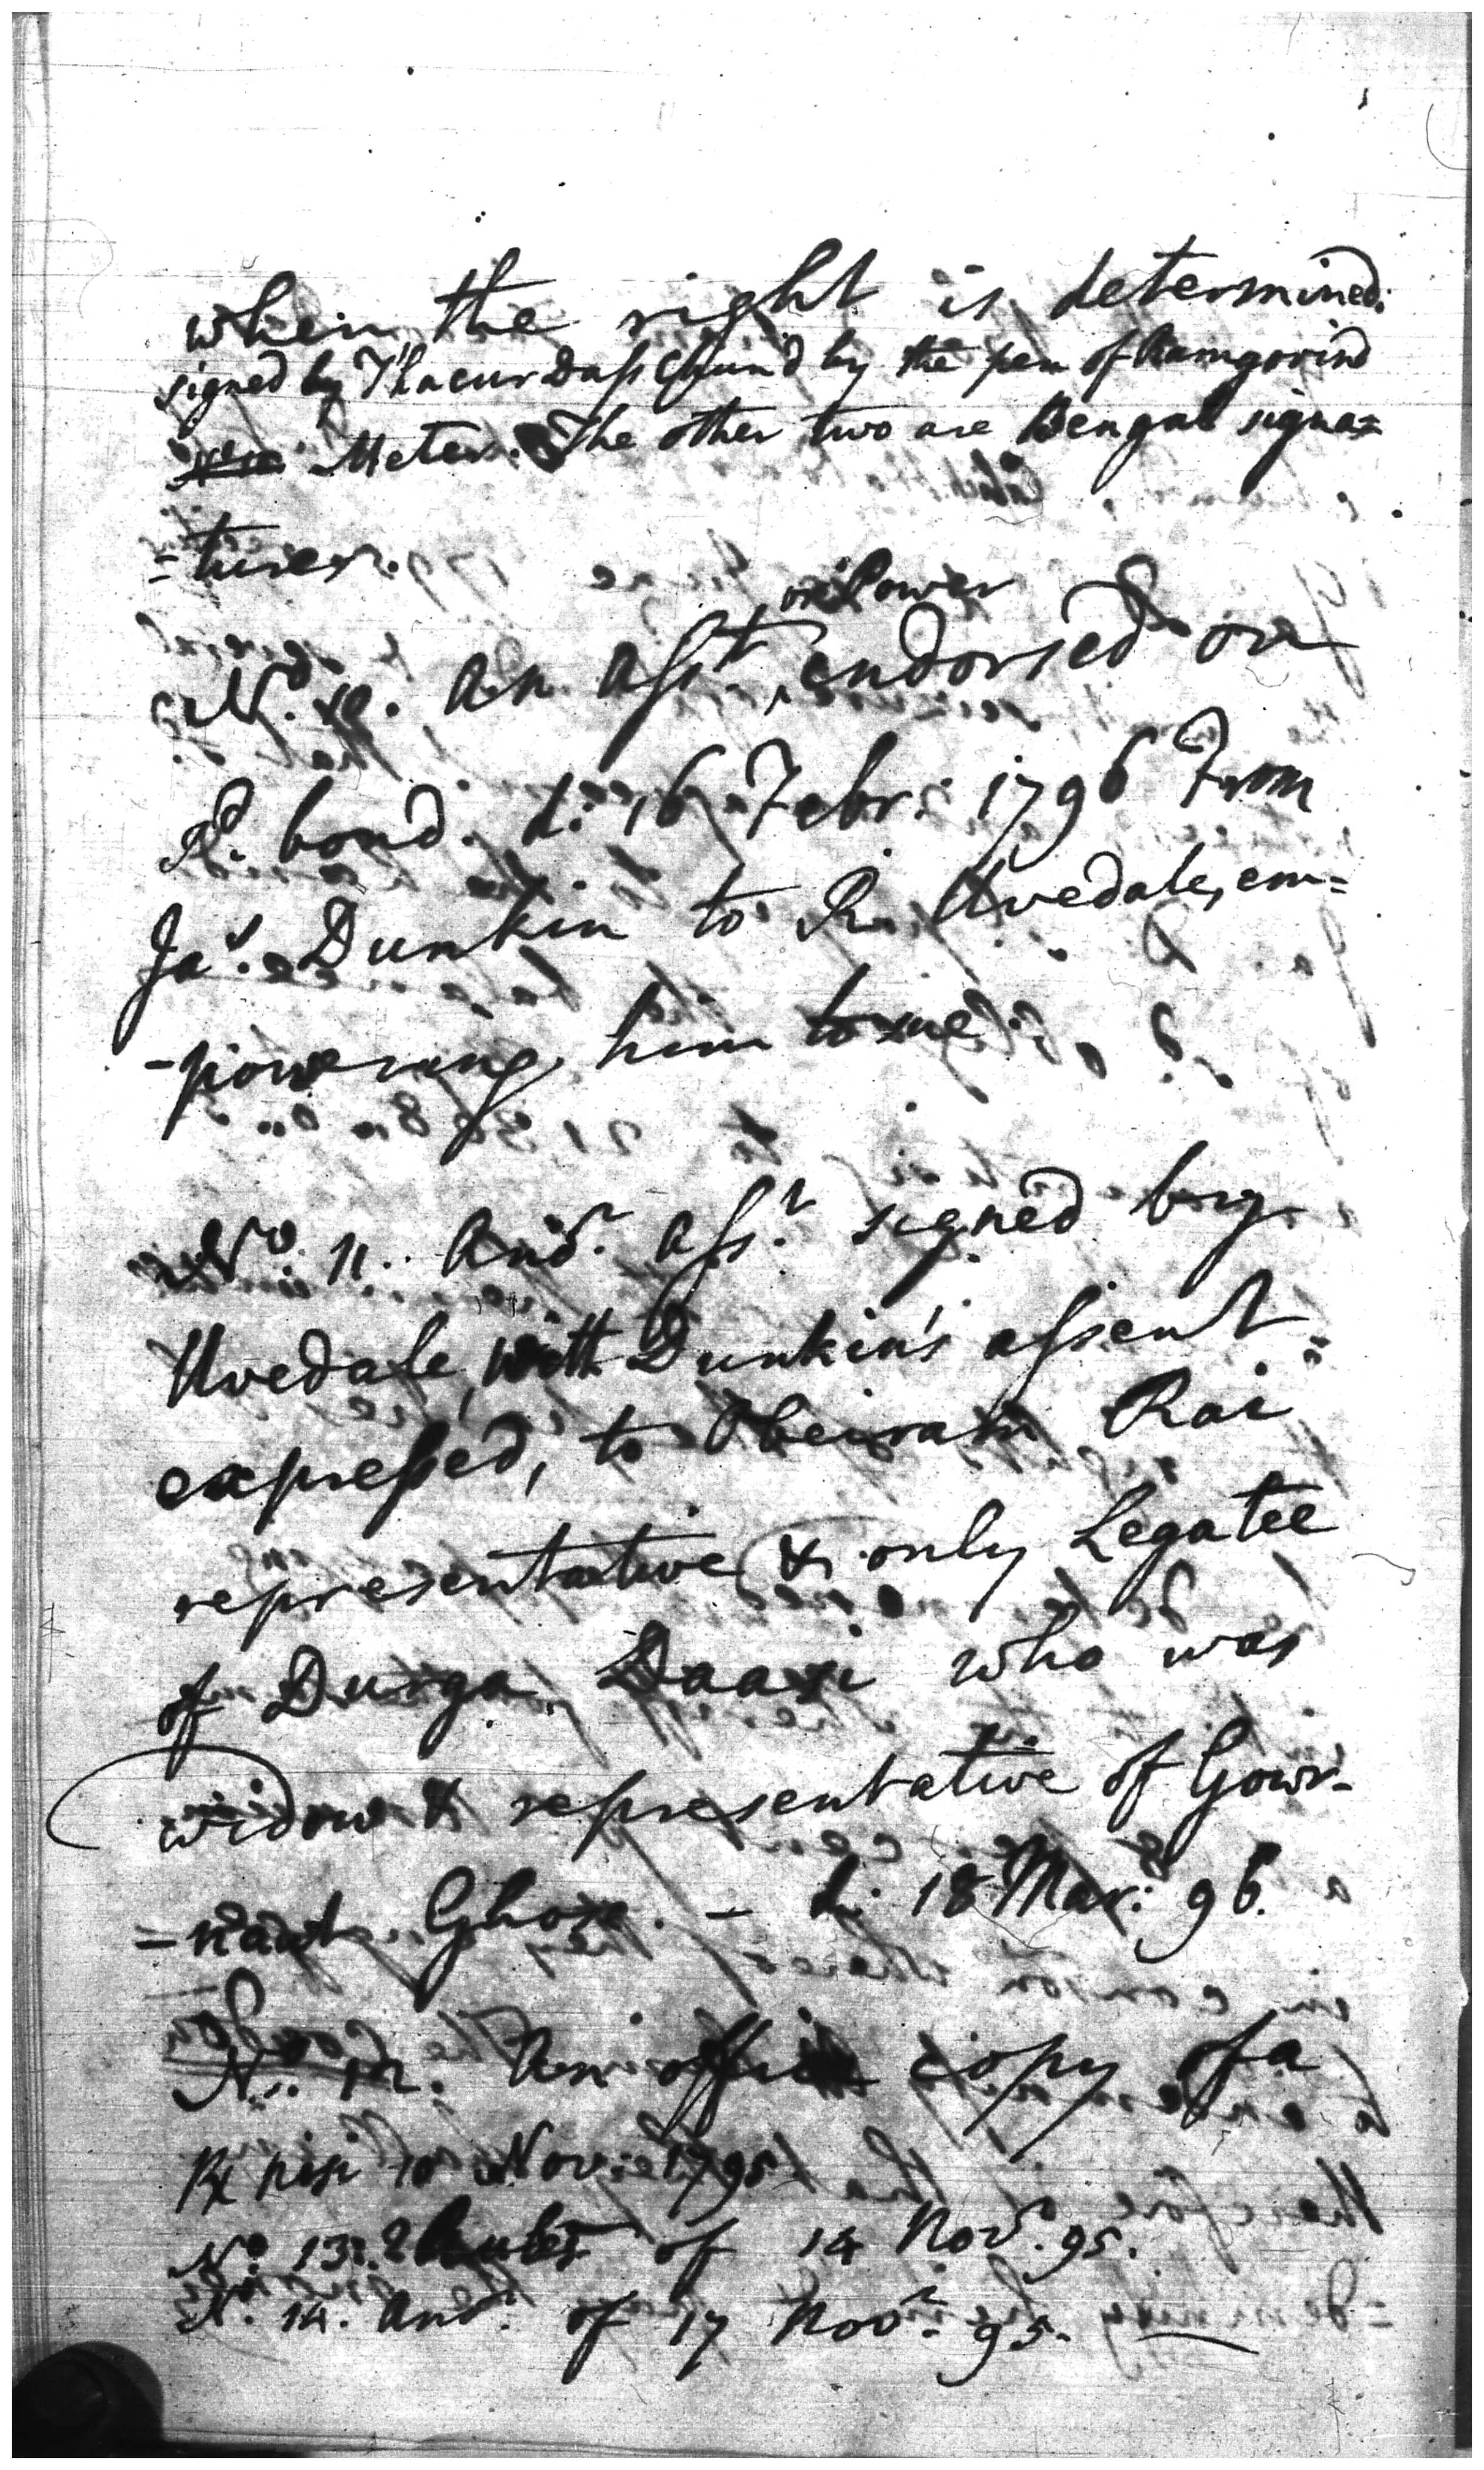 when the right is determined.
signed by Thacur Dass Chund by the pen of Ramgovind
Meter. The other two are Bengal signa=
=tures.
or Power
No. 10. An Asst. endorsed on
Sd. bond. d: 16 Febr: 1796 From
Jas. Dunkin to R. Uvedale, em=
-powering him to sue.
No. 11. Anor. Asst. signed by
Uvedale, with Dunkin's assent
expressed, to Rai
representative & only Legatee
of Durga Daasi who was
widow & representative of Gowr-
=naut Ghose. - d: 18 Mar: 96.
No. 12. An office copy of a
R nisi 10 Nov: 1795
No. 13. 2 Rules of 14 Novr. 95.
No. 14. Anor. of 17 Novr. 95. —